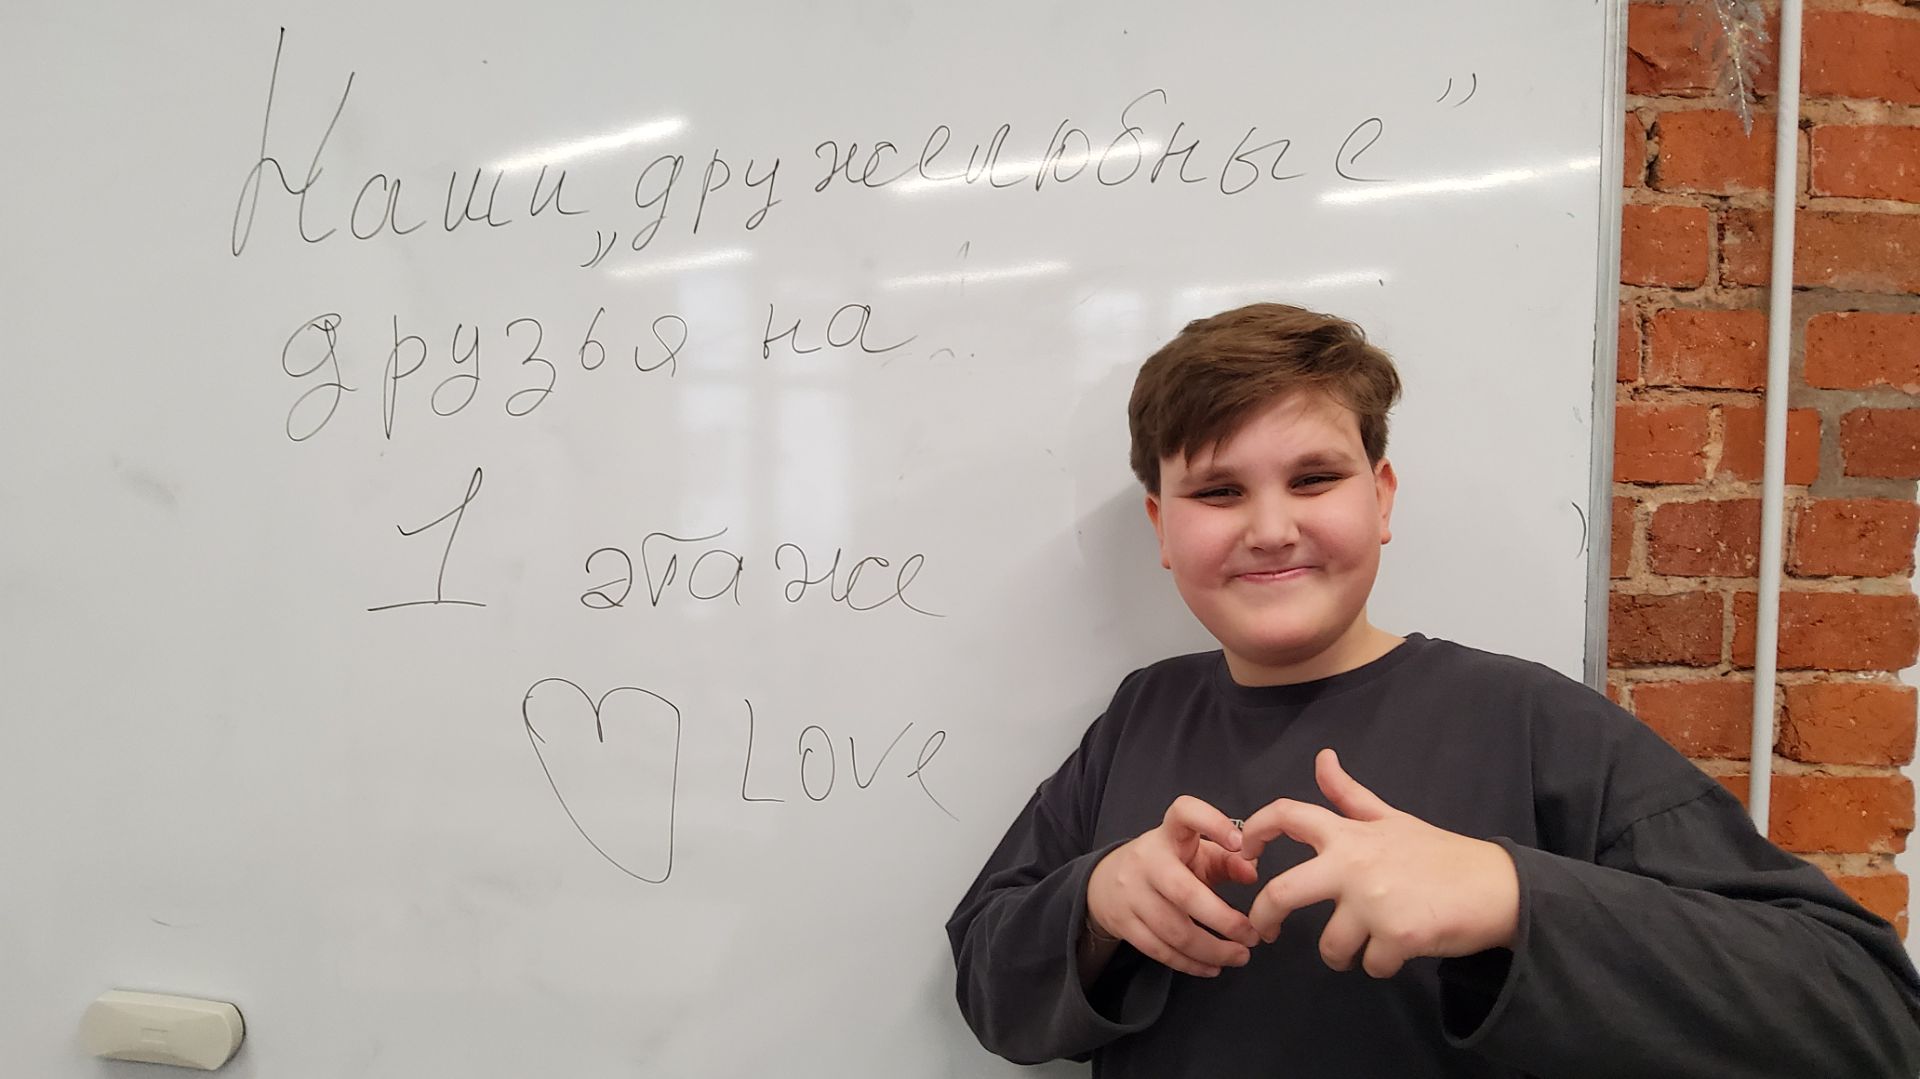 Наши „дружелюбные”
друзья на
1 этаже
Love